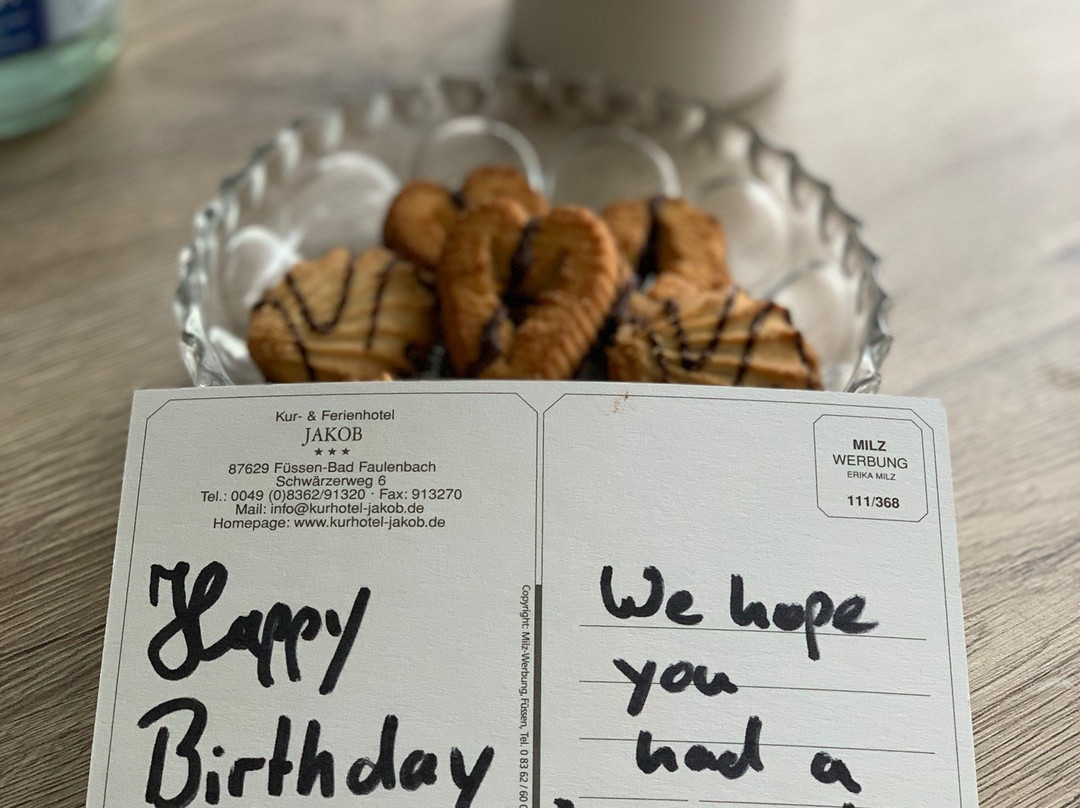 Kur- & Ferienhotel
JAKOB
★★★
87629 Füssen-Bad Faulenbach
Schwärzerweg 6
Tel.: 0049 (0)8362/91320 · Fax: 913270
Mail: info@kurhotel-jakob.de
Homepage: www.kurhotel-jakob.de
Happy
Birthday
Copyright: Milz-Werbung, Füssen, Tel. 0 83 62 / 60
MILZ
WERBUNG
ERIKA MILZ
111/368
We hope
you
had a